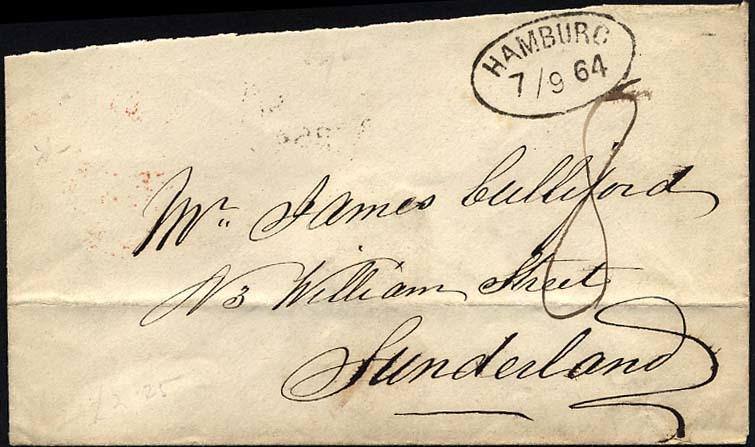 HAMBURG
7/9 64
8
Mr. James Culliford
N3 William Street
Sunderland
£2.25